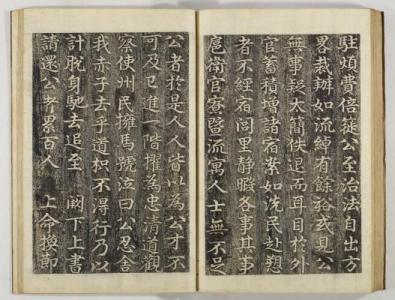 駐煩費倍蓰公至治法自出方
畧裁辦如流綽有餘裕或見公
無事疑太簡佚退而耳目於外
官蓄積增諸宿案如洗民赴愬
者不經宿閭里靜暇各事其事
扈衛官寮暨流寓人士無不足
公者於是人人皆以為公才不
可及已進一階擢為忠清道觀
察使州民擁馬號泣曰公忍舍
我赤子去乎道枳不得行乃以
計脫身馳去追至 闕下上書
請還公者累百人 上命換節